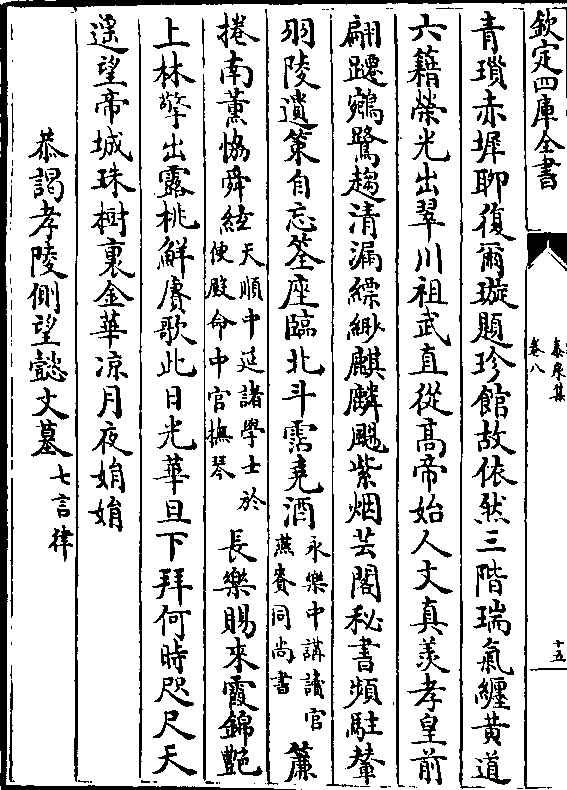 欽定四庫全書
泰泉集
卷八
十五
青瑣赤墀聊復爾璇題珍館故依然三階瑞氣纏黄道
六籍榮光出翠川祖武直從髙帝始人文真羡孝皇前
翩躚鵷鷺趨清漏縹緲麒麟颺紫烟芸閣秘書頻駐輦
羽陵遺策自忘筌座臨北斗霑堯酒永樂中講讀官燕賚同尚書簾
捲南薰恊舜絃天順中延諸學士於便殿命中官撫琴長樂賜來霞錦艷
上林擎出露桃鮮賡歌此日光華旦下拜何時咫尺天
遥望帝城珠樹裏金華凉月夜娟娟
恭謁孝陵側望懿文墓七言律